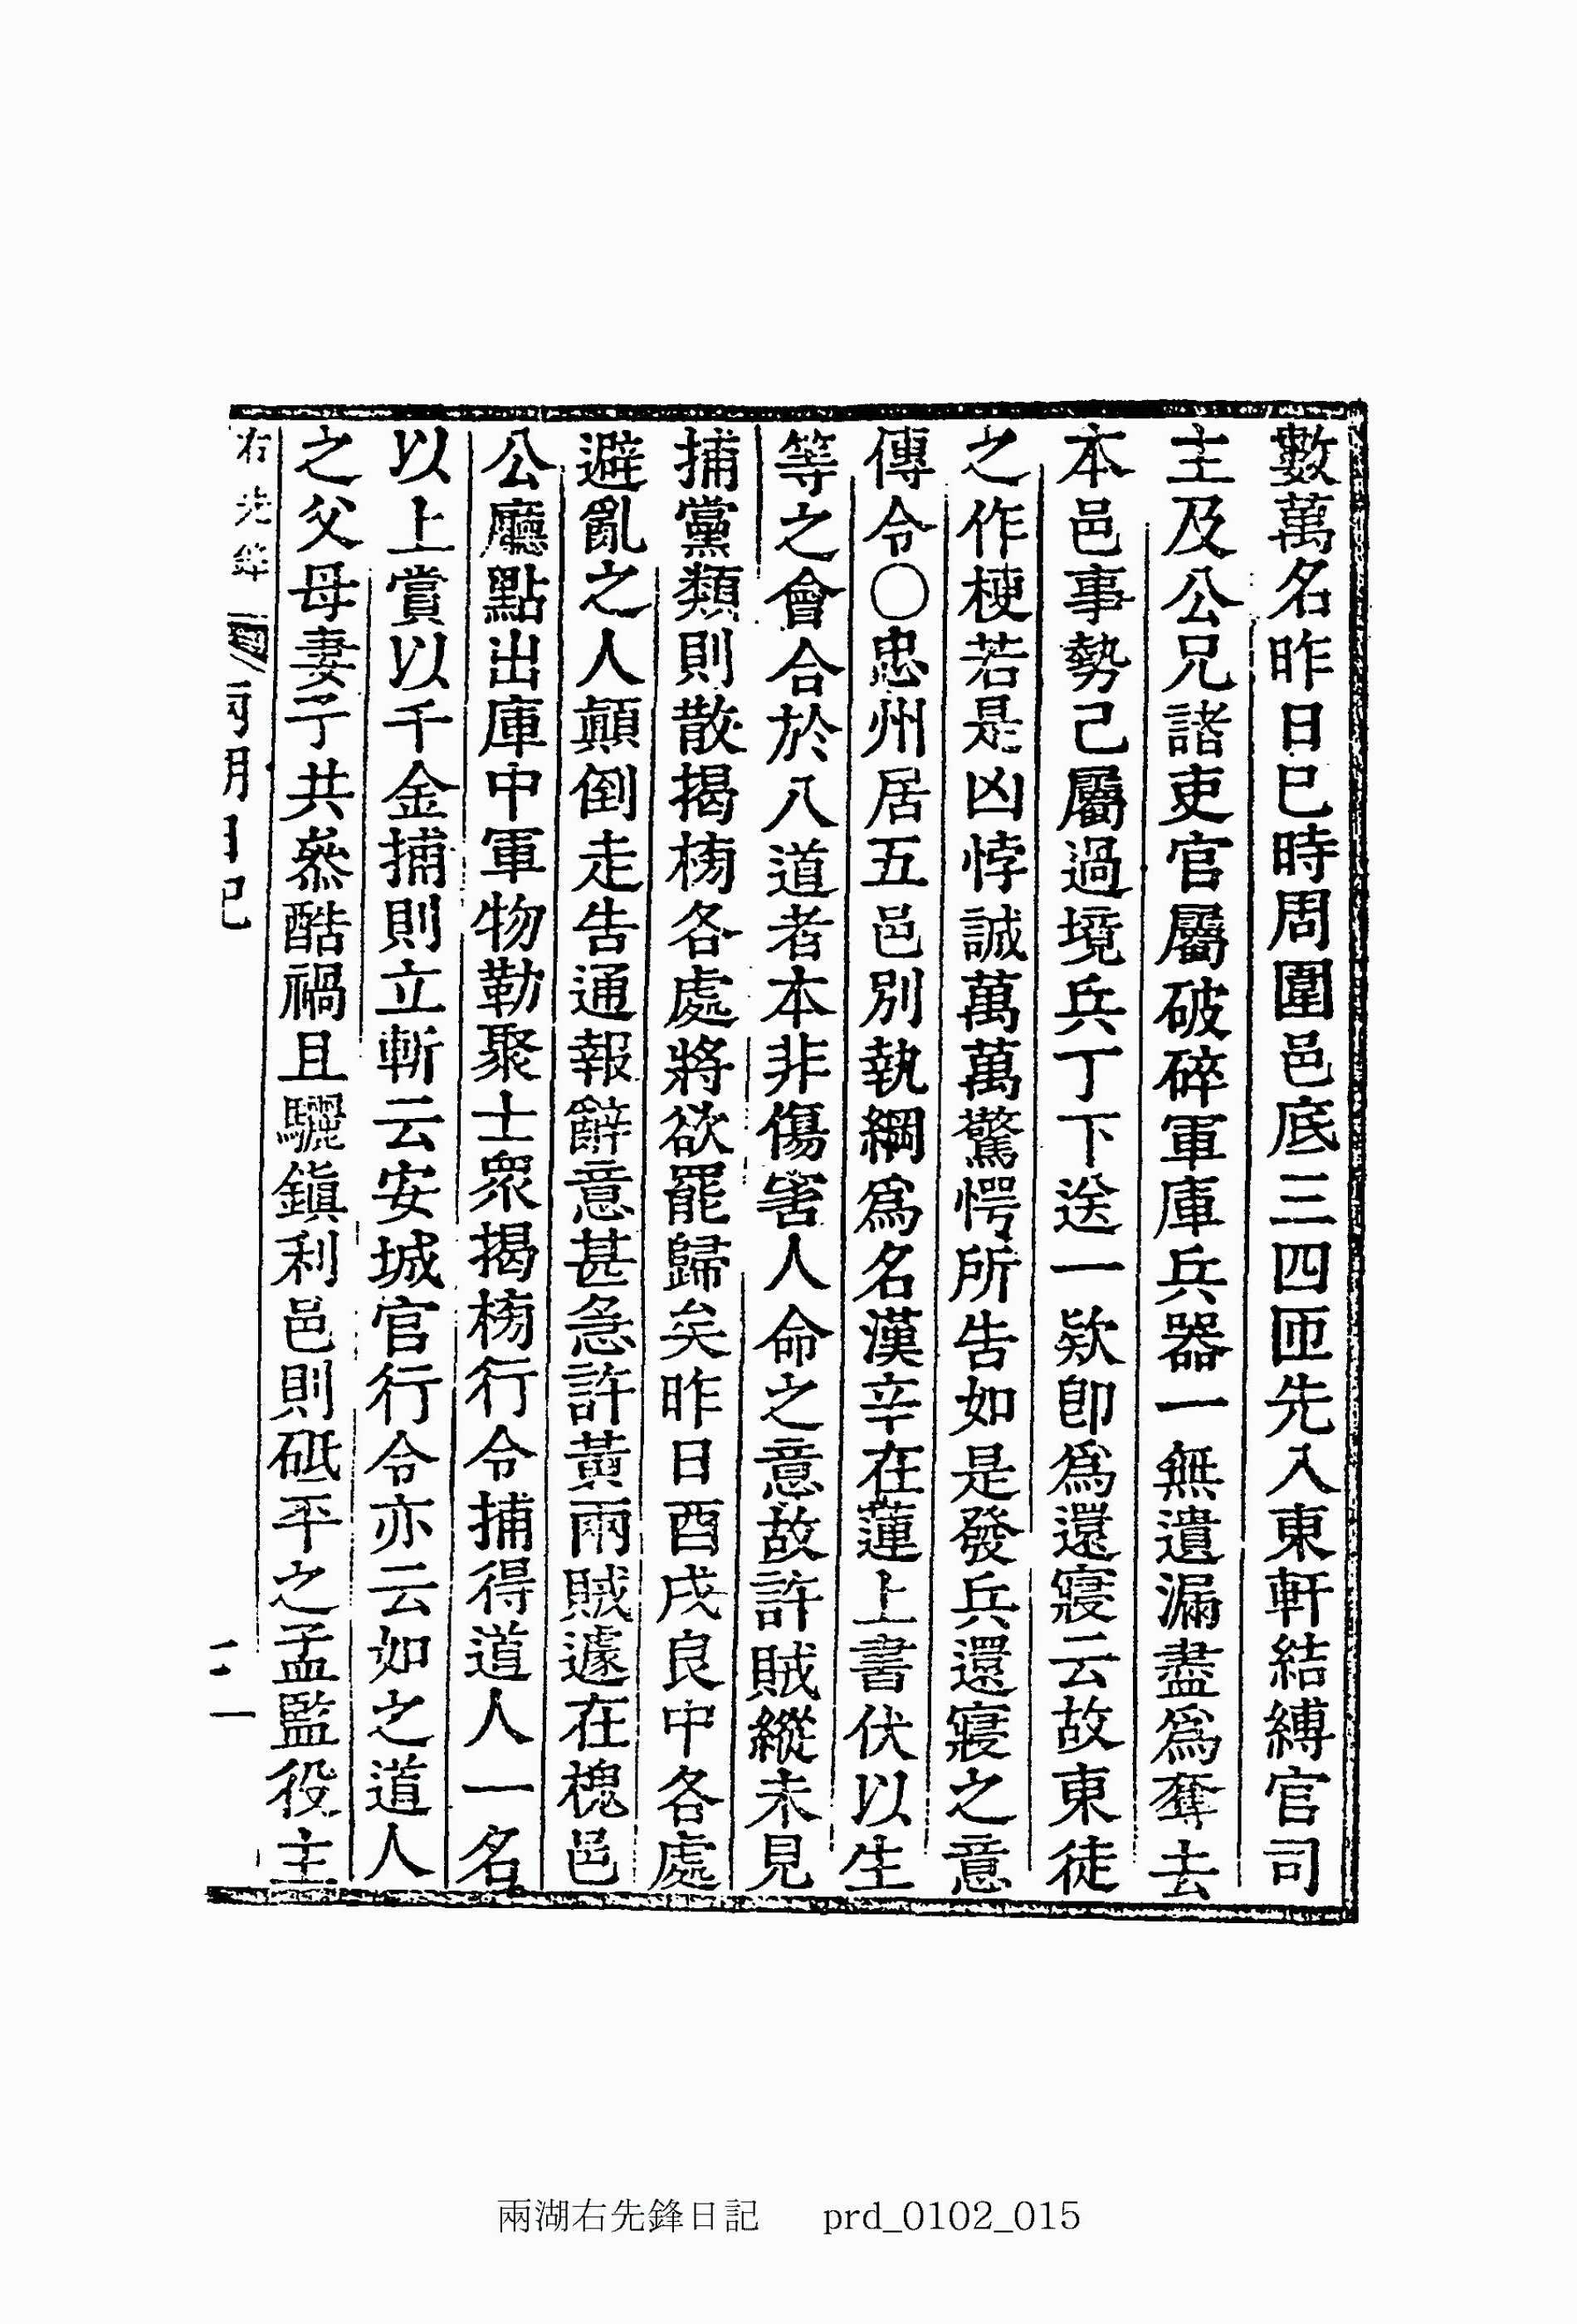 數萬名昨日巳時周圍邑底三四匝先入東軒結縛官司
主及公兄諸吏官屬破碎軍庫兵器一無遺漏盡爲奪去
本邑事勢己屬過境兵丁下送一欵卽爲還寢云故東徒
之作梗若是凶悖誠萬萬驚愕所告如是發兵還寢之意
傳令〇忠州居五邑別執綱爲名漢辛在蓮上書伏以生
等之會合於八道者本非傷害人命之意故許賊縱未見
捕黨類則散揭榜各處將欲罷歸矣昨日酉戌良中各處
避亂之人顚倒走告通報辭意甚急許黃兩賊遽在槐邑
公廳點出庫中軍物勒聚士衆揭榜行令捕得道人一名
以上賞以千金捕則立斬云安城官行令亦云如之道人
之父母妻子共叅酷禍且驪鎭利邑則砥平之孟監役主
右先鋒 兩 日記
兩湖右先鋒日記 prd_0102_015